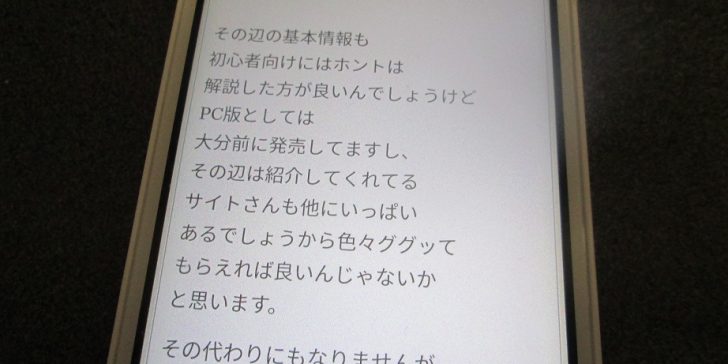 その辺の基本情報も
初心者向けにはホントは
解説した方が良いんでしょうけど
PC版としては
大分前に発売してますし、
その辺は紹介してくれてる
サイトさんも他にいっぱい
あるでしょうから色々ググッて
もらえれば良いんじゃないか
と思います。
その代わりにもなりませんが